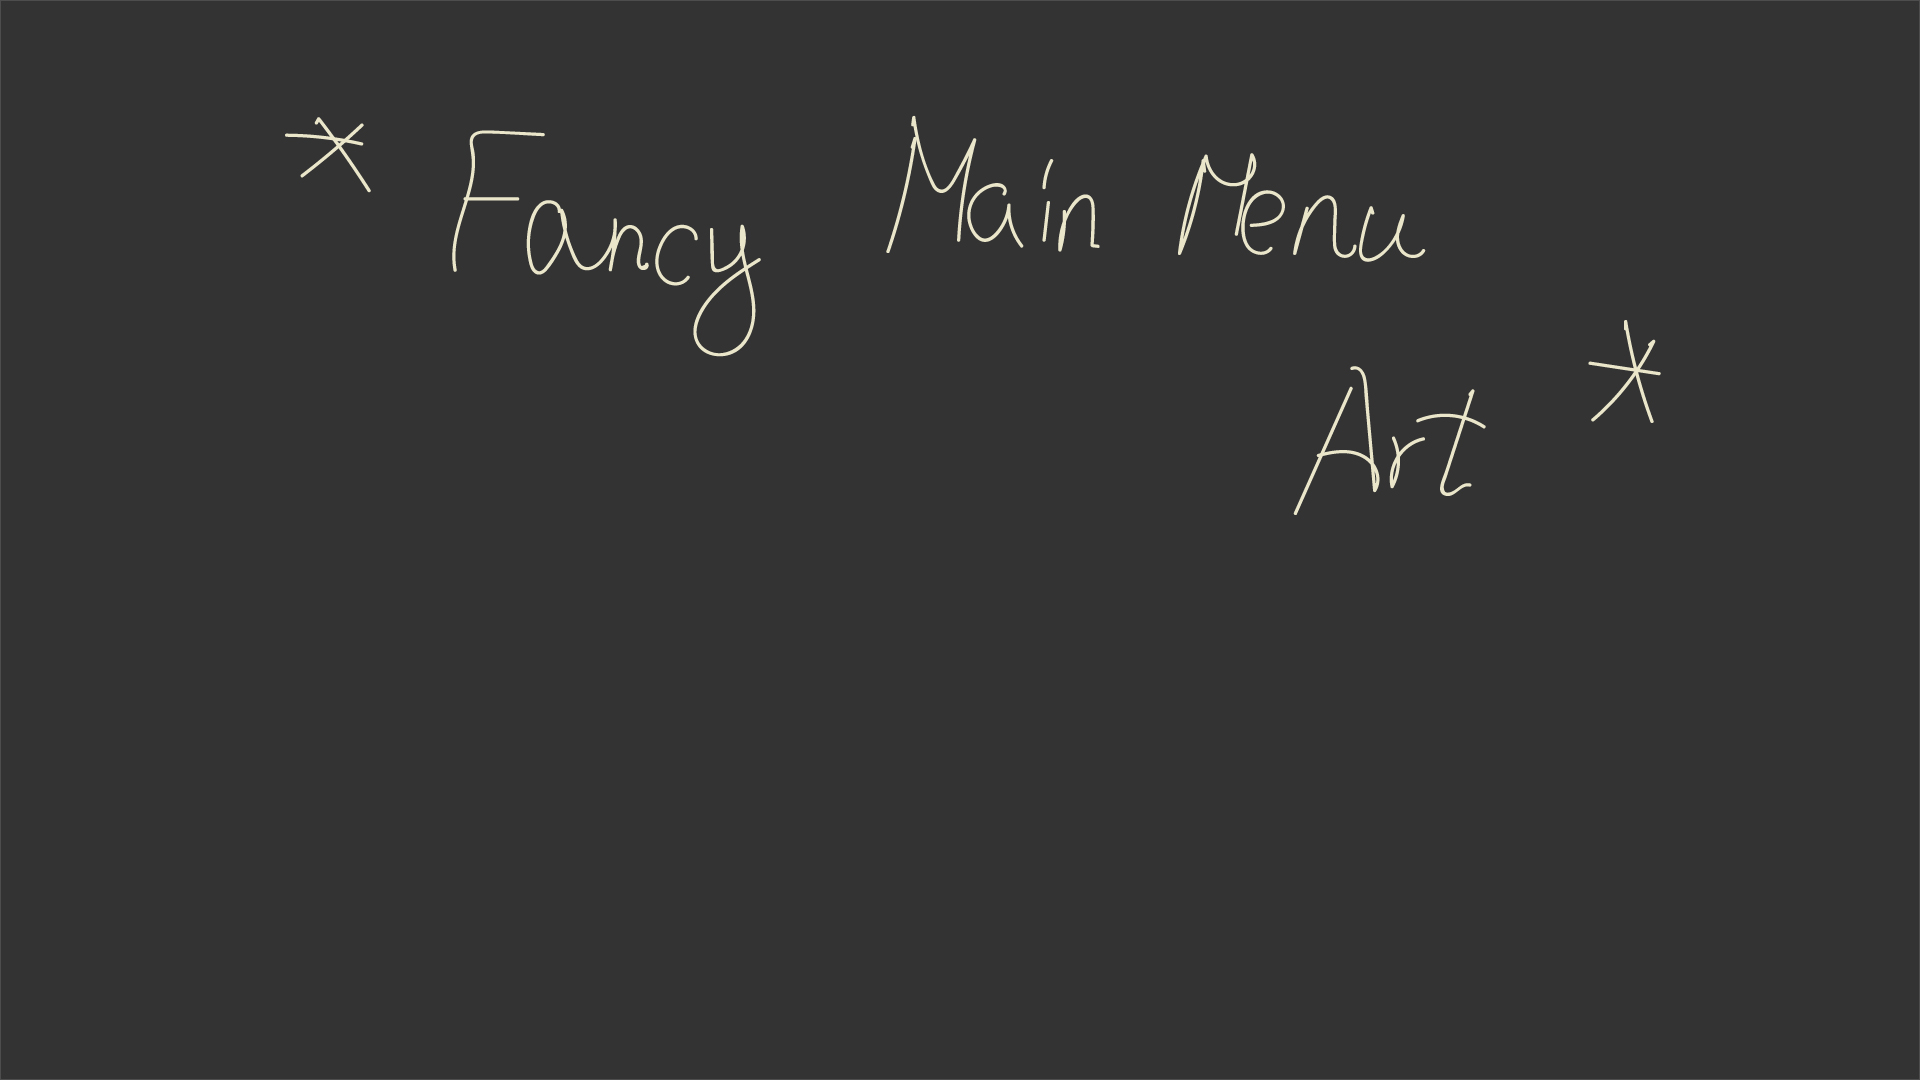 * Fancy Main Menu
Art *